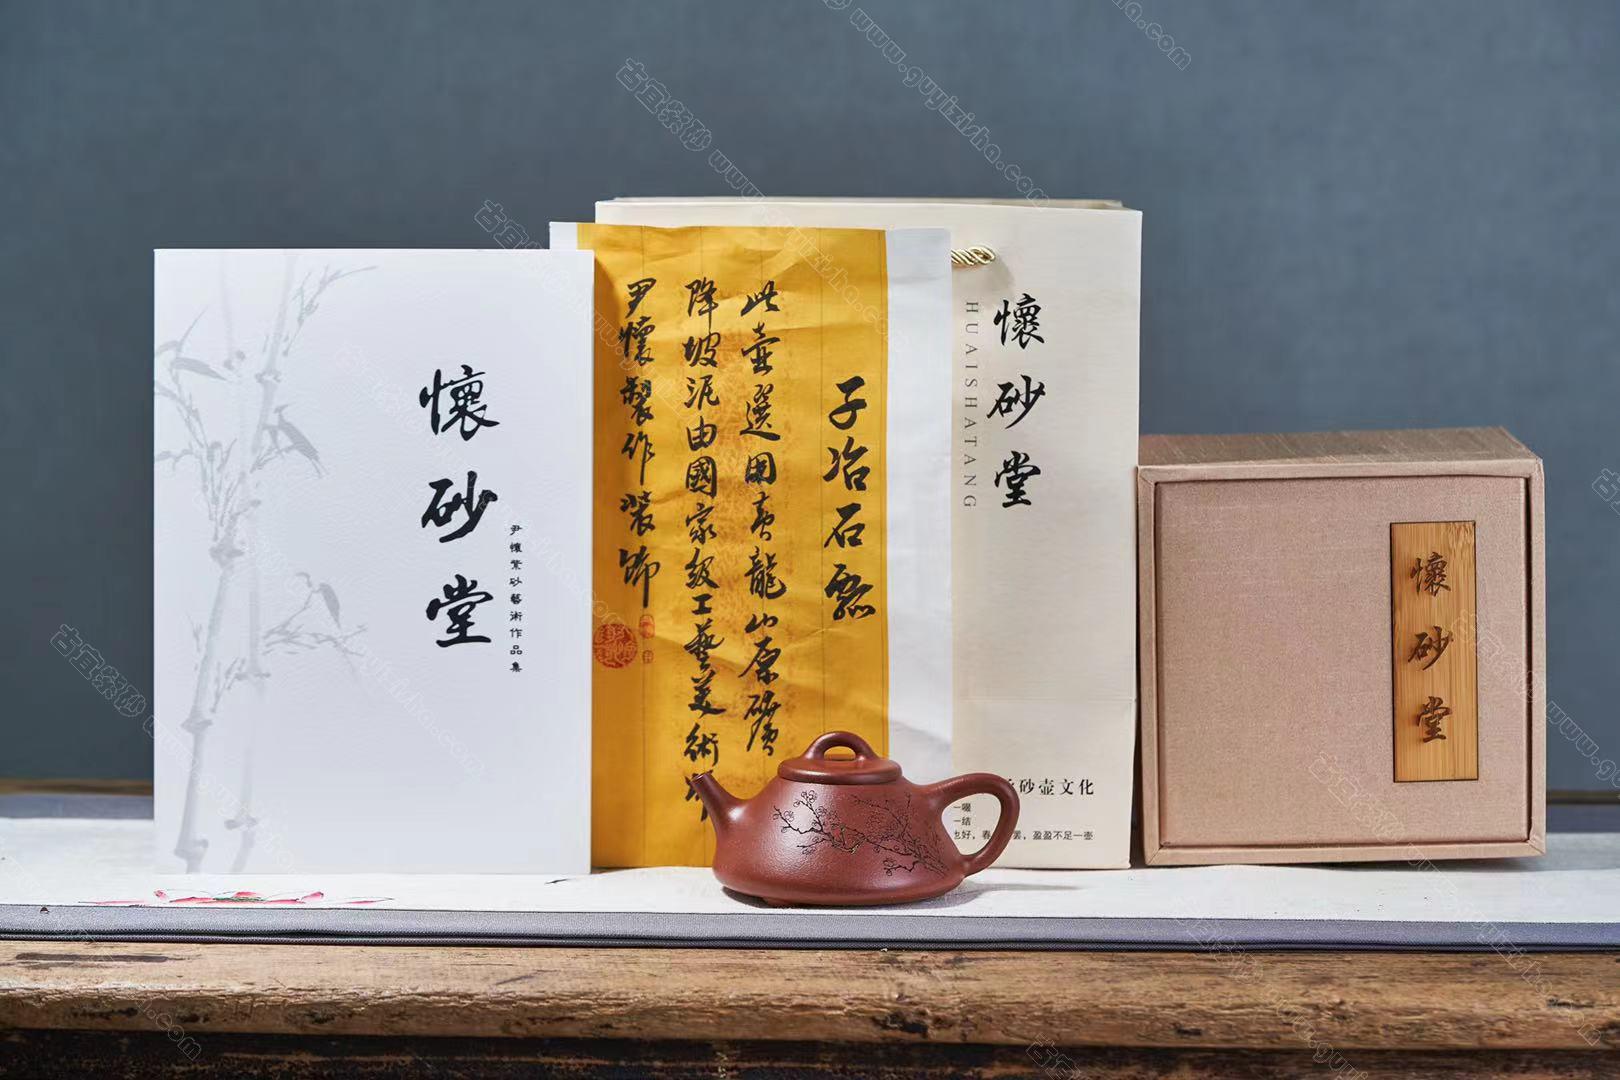 懷砂堂
尹懷紫砂藝術作品集
子冶石瓢
此壺選用黃龍山原礦
降坡泥由國家級工藝美術師
尹懷製作裝飾
懷砂堂
HUAISHATANG
砂壶文化
一啜
一结
也好，春
罢，盈盈不足一壶
懷砂堂
古宜紫砂 www.guyizisha.com